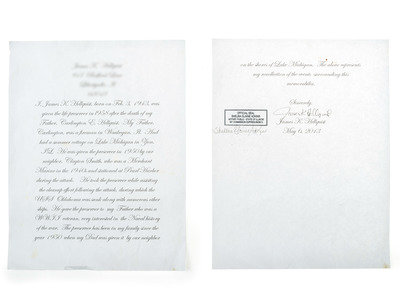 James K. Hellquist
I, James K. Hellquist, born on Feb. 3, 1963, was
given the life preserver in 1988 after the death of my
Father, Carlington E. Hellquist. My Father,
Carlington, was a prison in Waukegan Il. Had
had a summer cottage on Lake Michigan in Zion,
Ill. He was given the preserver in 1950 by our
neighbor, Clayton Smith, who was a Merchant
Marine in the 1940s and stationed at Pearl Harbor
during the attack. He took the preserver while assisting
the cleanup effort following the attack, during which the
USS Oklahoma was sunk along with numerous other
ships. He gave the preserver to my Father who was a
WWII veteran, very interested in the Naval history
of the war. The preserver has been in my family since the
year 1950 when my Dad was given it by our neighbor
on the shores of Lake Michigan. The above represents
my recollection of the events surrounding this
memorabilia.
Sincerely,
James K. Hellquist
OFFICIAL SEAL
James K. Hellquist
May 6, 2013